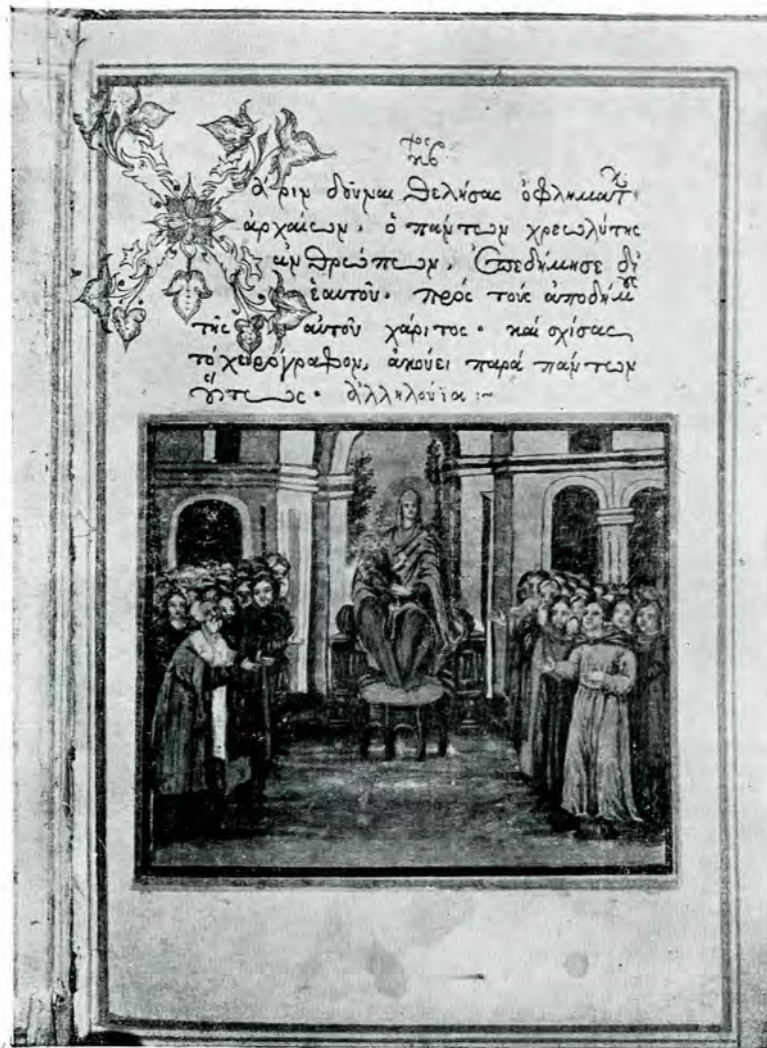 Χάριν δοῦναι θελήσας ὀφλημάτων
ἀρχαίων. ὁ πάντων χρεωλύτης
ἀνθρώπων, ἐπεδήμησε δι'
ἑαυτοῦ. πρὸς τοὺς ἀποδήμους
τῆς αὐτοῦ χάριτος. καὶ σχίσας
τὸ χειρόγραφον, ἀκούει παρὰ πάντων
οὕτως. ἀλληλούϊα :~